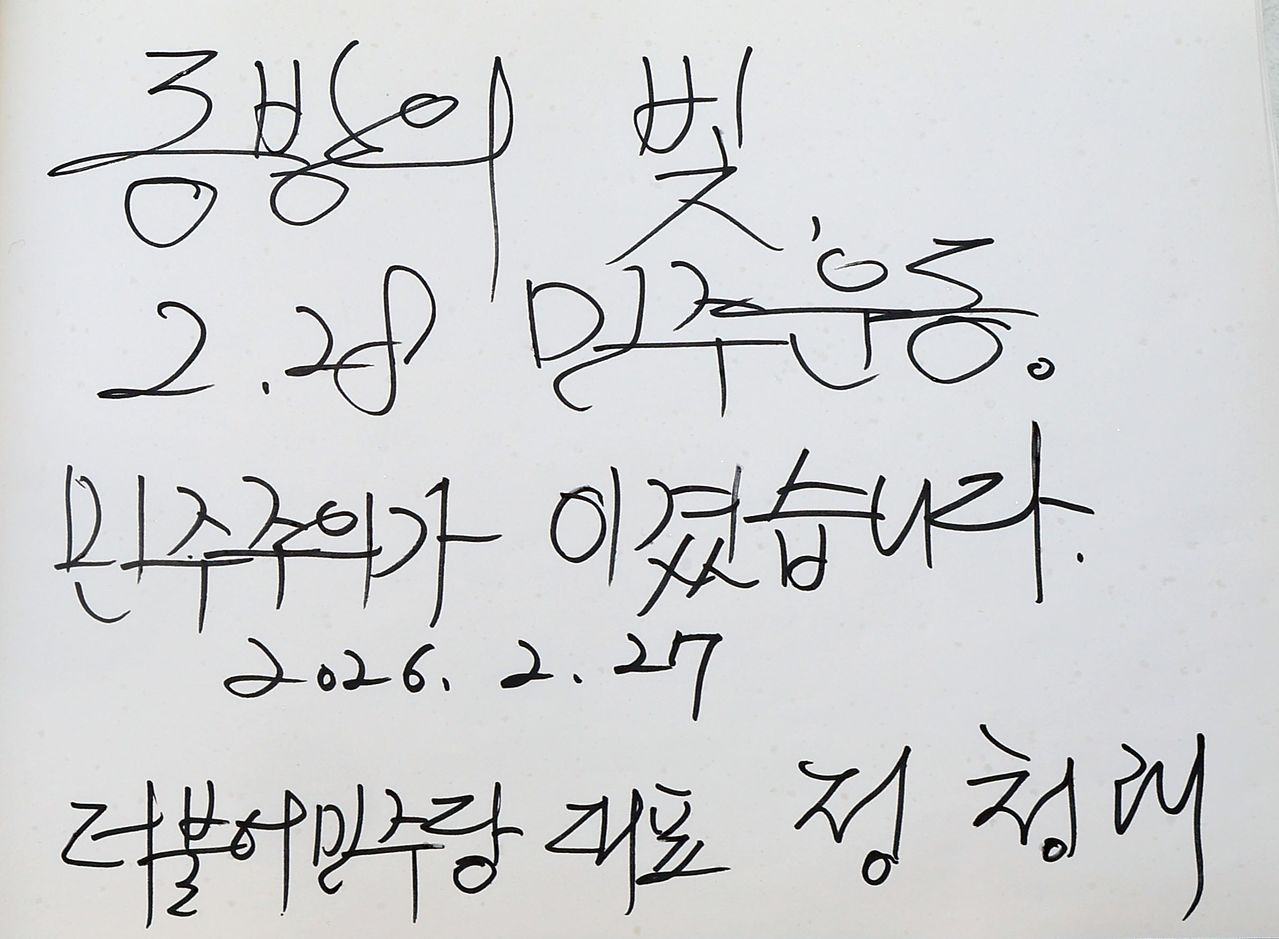 동방의 빛
2.28 민주운동.
민주주의가 이겼습니다.
2026. 2. 27
더불어민주당 대표 정청래